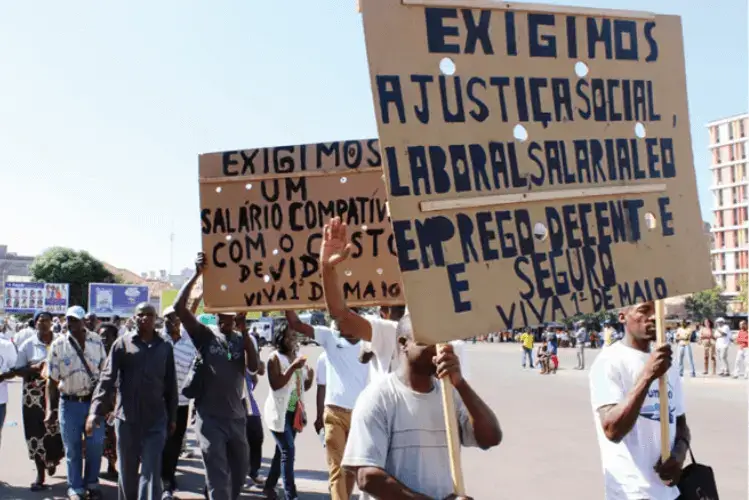 EXIGIMOS
A JUSTIÇA SOCIAL,
LABORAL, SALARIAL E O
EMPREGO DECENTE
E SEGURO
VIVA 1º DE MAIO
EXIGIMOS
UM
SALÁRIO COMPATIV
COM O CUSTO
DE VID
VIVA 1º DE MAIO